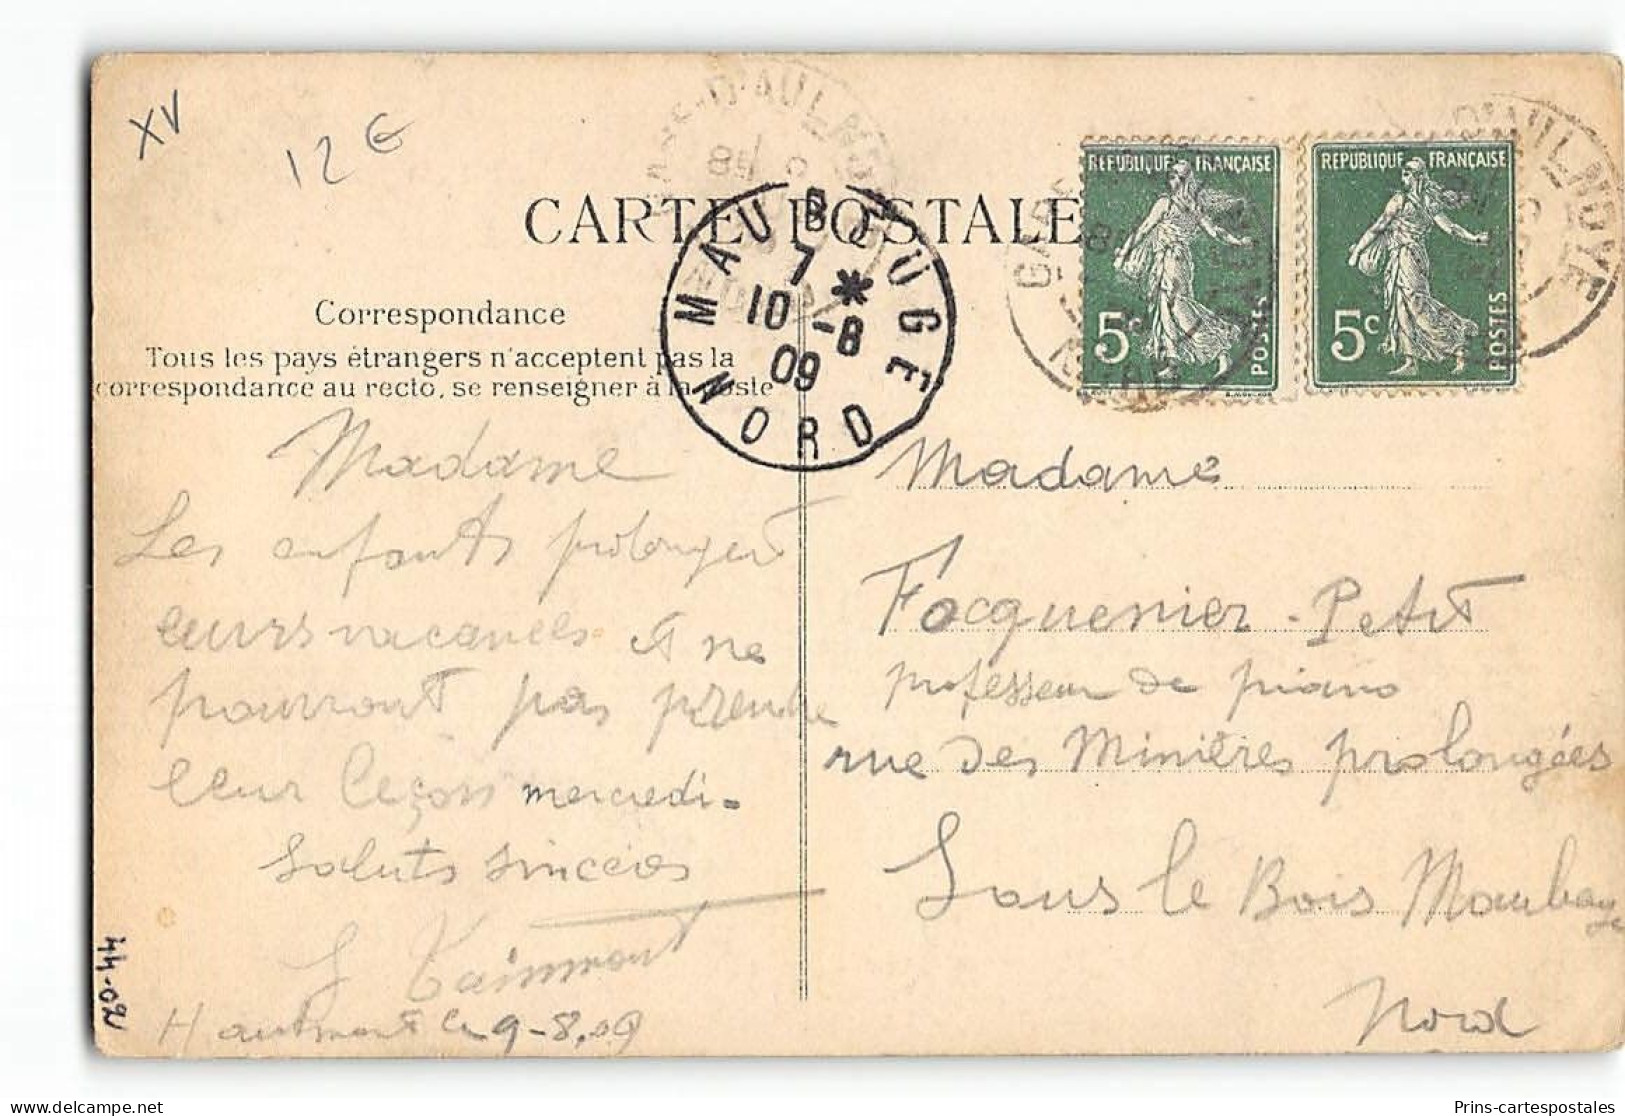 XV
12 €
CARTE POSTALE
Correspondance
Tous les pays étrangers n'acceptent pas la
correspondance au recto, se renseigner à la Poste
MAUBEUGE
7
10 -8
09
NORD
GARE D'AULNOYE
NORD
REPUBLIQUE FRANÇAISE
5c
POSTES
REPUBLIQUE FRANÇAISE
5c
POSTES
Madame
Les enfants prolongent
leurs vacances et ne
pourront pas prendre
leur leçon mercredi.
Saluts sincères
Hautmont le 9-8.09
44-02
Madame
Focquenier-Petit
professeur de piano
rue des Minières prolongées
Sous le Bois Maubeuge
Nord
Prins-cartespostales
delcampe.net